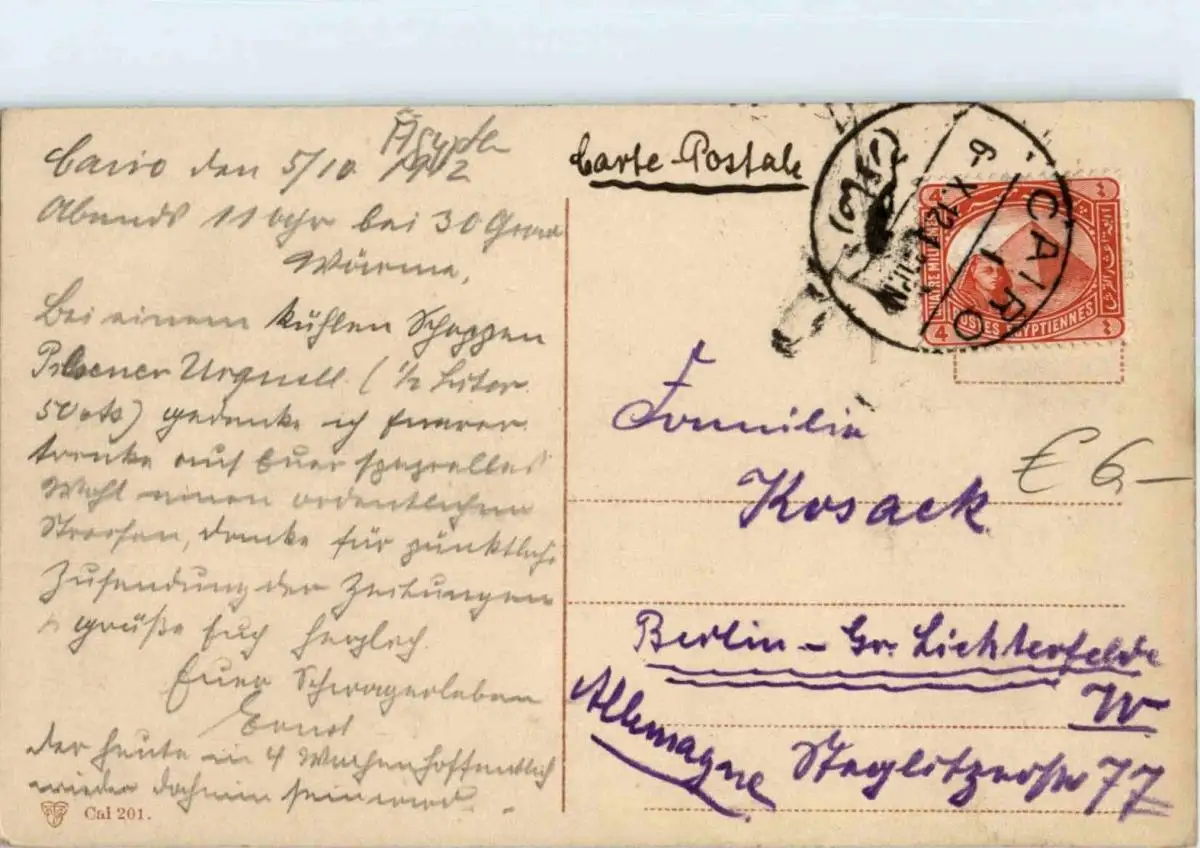 Ägypten
Cairo den 5/10 1912
Abends 11 Uhr bei 30 Grad
Wärme,
Bei einem kühlen Schoppen
Pilsener Urquell (1/2 Liter
50 cts) gedenke ich Eurer
trinke auf Euer spezielles
Wohl einen ordentlichen
Streifen, danke für pünktliche
Zusendung der Zeitungen
& grüße Euch herzlich
Euer Schwagerleben
Ernst
der heute in 4 Wochen hoffentlich
wieder daheim sein wird.
Cai 201.
Carte Postale
CAIRO
1
6-X.12
4
POSTES EGYPTIENNES
4
Familie
Kosack
€ 6,-
Berlin - Gr. Lichterfelde
W
Allemagne
Steglitzerstr 77